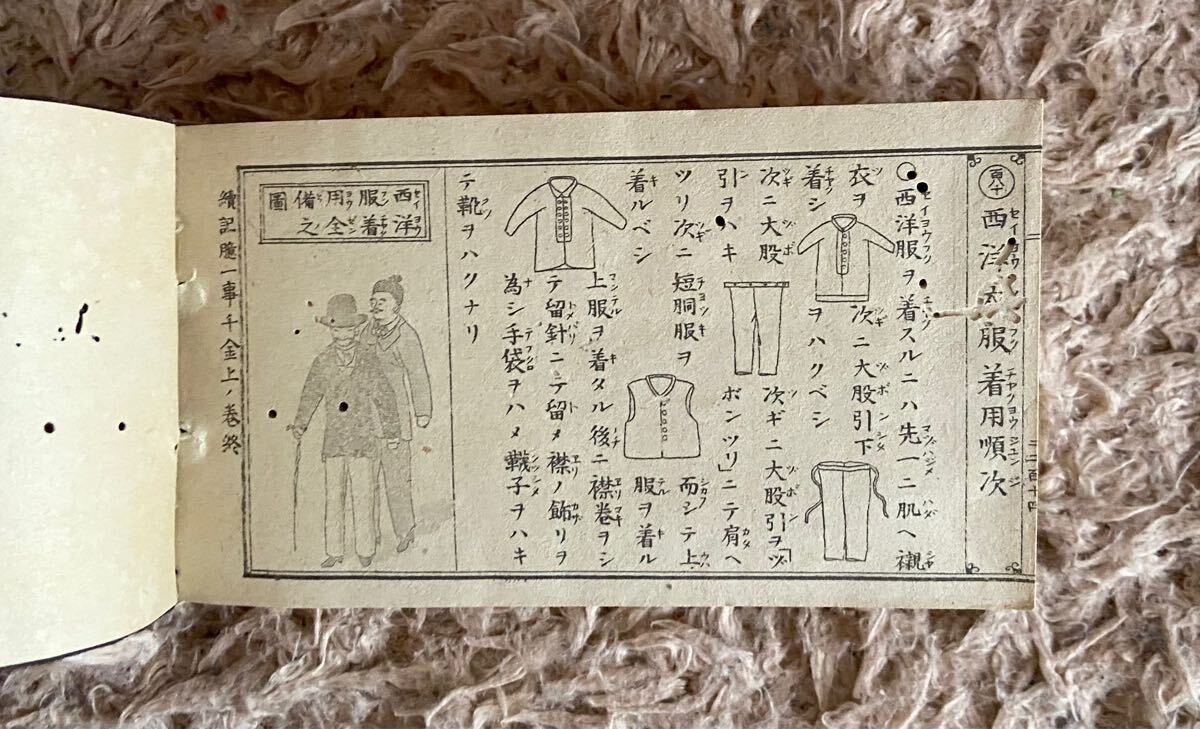 百八十 西洋衣服着用順次
○西洋服ヲ着スルニハ先一ニ肌ヘ襯
衣ヲ 次ニ大股引下
着シ ヲハクベシ
次ニ大股 次ギニ大股引ヲ「ヅ
引ヲハキ ボンツリ」ニテ肩ヘ
ツリ次ニ 短胴服ヲ 而シテ上
着ルベシ 服ヲ着ル
上服ヲ着タル後ニ襟巻ヲシ
テ留針ニテ留メ襟ノ飾リヲ
為シ手袋ヲハメ韈子ヲハキ
テ靴ヲハクナリ
西洋
服着
用全
備之
圖
續記臆一事千金上ノ巻終